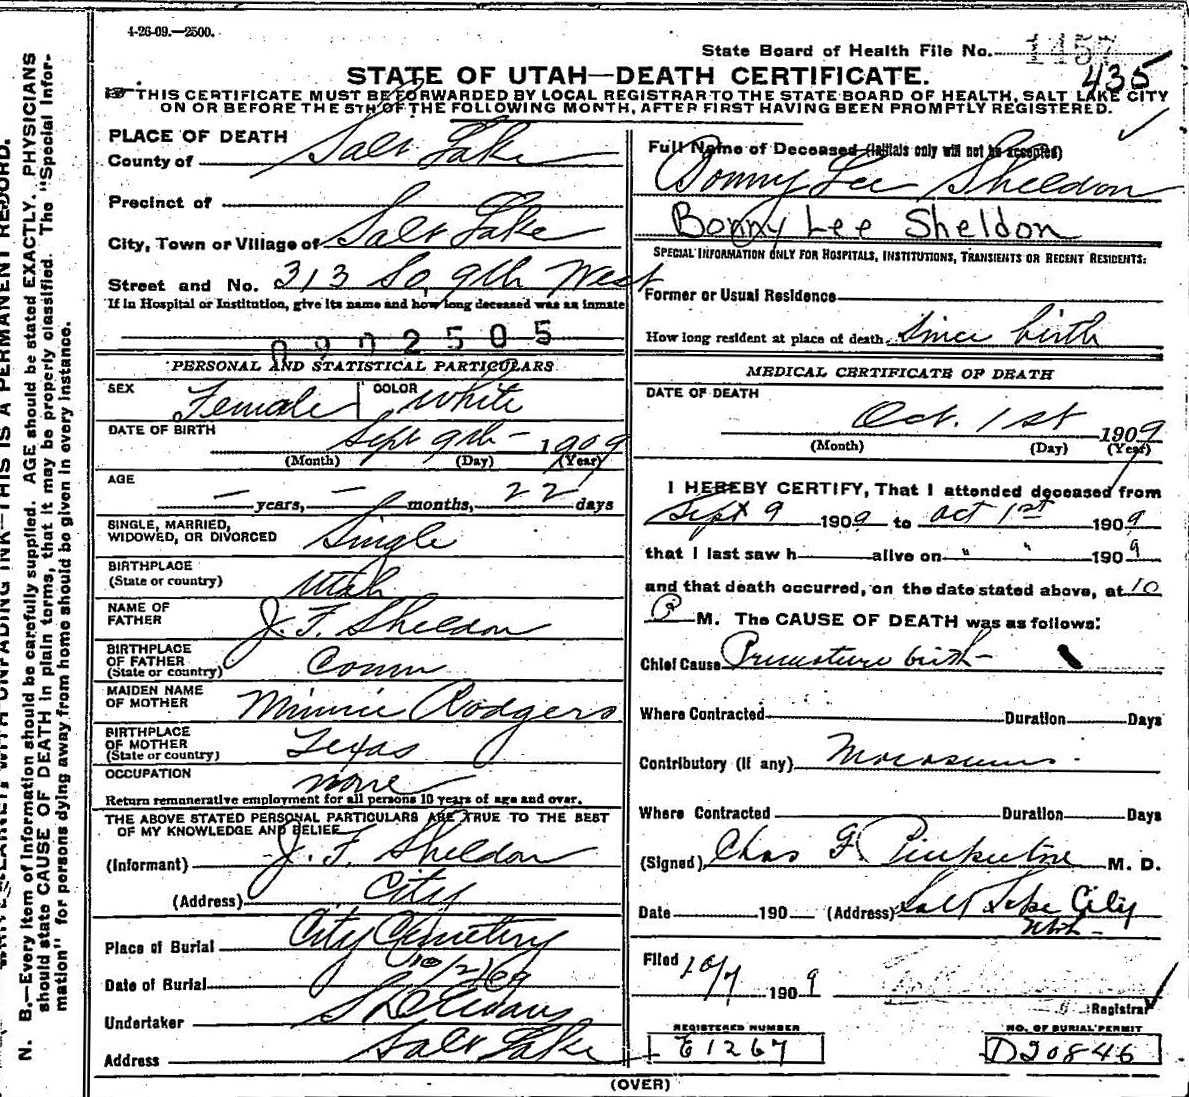 4-26-09.—2500.
State Board of Health File No. 1457
435
STATE OF UTAH—DEATH CERTIFICATE.
THIS CERTIFICATE MUST BE FORWARDED BY LOCAL REGISTRAR TO THE STATE BOARD OF HEALTH, SALT LAKE CITY
ON OR BEFORE THE 5TH OF THE FOLLOWING MONTH, AFTER FIRST HAVING BEEN PROMPTLY REGISTERED.
N. B.—Every item of information should be carefully supplied. AGE should be stated EXACTLY. PHYSICIANS
should state CAUSE OF DEATH in plain terms, that it may be properly classified. The "Special Infor-
mation" for persons dying away from home should be given in every instance.
PLACE OF DEATH
County of Salt Lake
Precinct of
City, Town or Village of Salt Lake
Street and No. 313 So. 9th West
If in Hospital or Institution, give its name and how long deceased was as inmate
0902505
PERSONAL AND STATISTICAL PARTICULARS
SEX Female COLOR White
DATE OF BIRTH Sept 9th — 1909
(Month) (Day) (Year)
AGE
— years, — months, 22 days
SINGLE, MARRIED,
WIDOWED, OR DIVORCED Single
BIRTHPLACE
(State or country) Utah
NAME OF
FATHER J. F. Sheldon
BIRTHPLACE
OF FATHER
(State or country) Conn
MAIDEN NAME
OF MOTHER Minnie Rodgers
BIRTHPLACE
OF MOTHER
(State or country) Texas
OCCUPATION none
Return remunerative employment for all persons 10 years of age and over.
THE ABOVE STATED PERSONAL PARTICULARS ARE TRUE TO THE BEST
OF MY KNOWLEDGE AND BELIEF
(Informant) J. F. Sheldon
(Address) City
Place of Burial City Cemetery
Date of Burial 10/2/09
Undertaker S D Evans
Address Salt Lake
Full Name of Deceased (Initials only will not be accepted)
Bonny Lee Sheldon
Bonny Lee Sheldon
SPECIAL INFORMATION ONLY FOR HOSPITALS, INSTITUTIONS, TRANSIENTS OR RECENT RESIDENTS:
Former or Usual Residence
How long resident at place of death Since birth
MEDICAL CERTIFICATE OF DEATH
DATE OF DEATH
Oct. 1st 1909
(Month) (Day) (Year)
I HEREBY CERTIFY, That I attended deceased from
Sept 9 1909 to Oct 1st 1909
that I last saw h alive on " " 1909
and that death occurred, on the date stated above, at 10
P M. The CAUSE OF DEATH was as follows:
Chief Cause Premature birth —
Where Contracted Duration Days
Contributory (if any)
Where Contracted Duration Days
(Signed) Chas G. Pinkerton M. D.
Date 190 (Address) Salt Lake City
Utah —
Filed 10/7 1909
Registrar
REGISTERED NUMBER
E1267
NO. OF BURIAL PERMIT
D20846
(OVER)